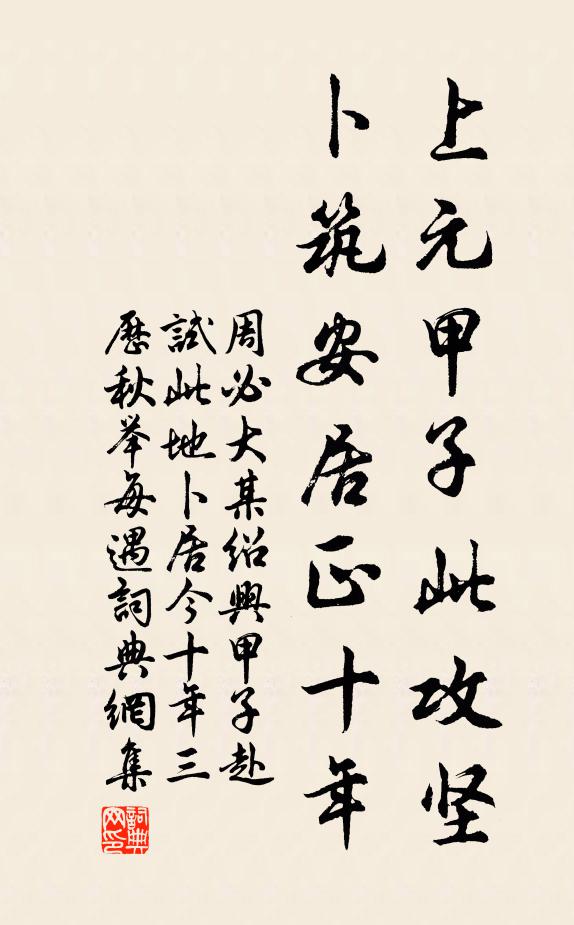 上元甲子此攻坚
卜筑安居正十年
周必大某绍興甲子赴
試此地卜居今十年三
歷秋举每遇詞典網集
詞典
网印